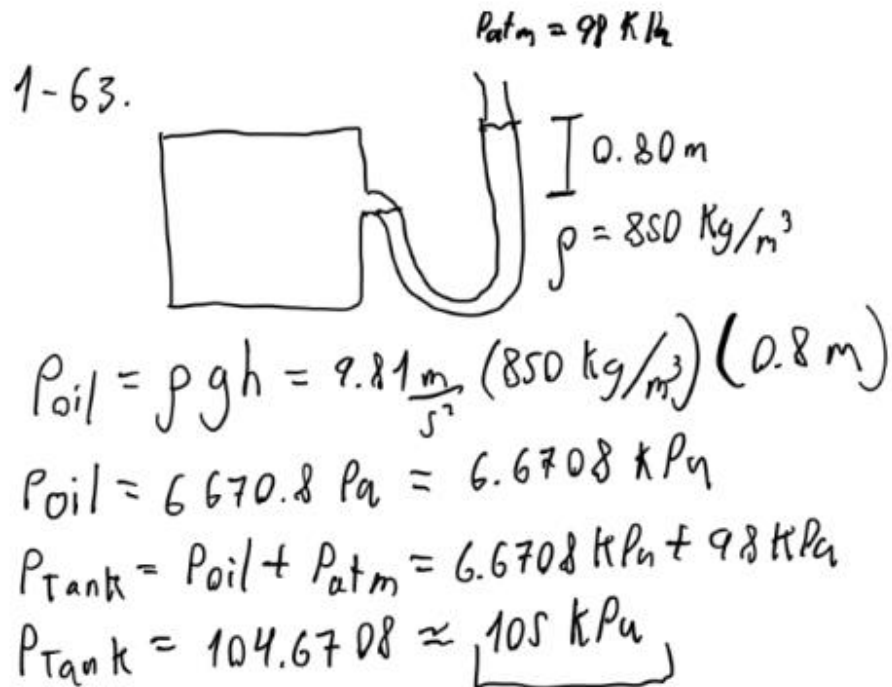 Patm = 98 KPa
1-63.
0.80 m
ρ = 850 Kg/m³
Poil = ρgh = 9.81 m/s² (850 kg/m³) (0.8 m)
Poil = 6 670.8 Pa = 6.6708 KPa
PTank = Poil + Patm = 6.6708 KPa + 98 KPa
PTank = 104.6708 ≈ 105 KPa